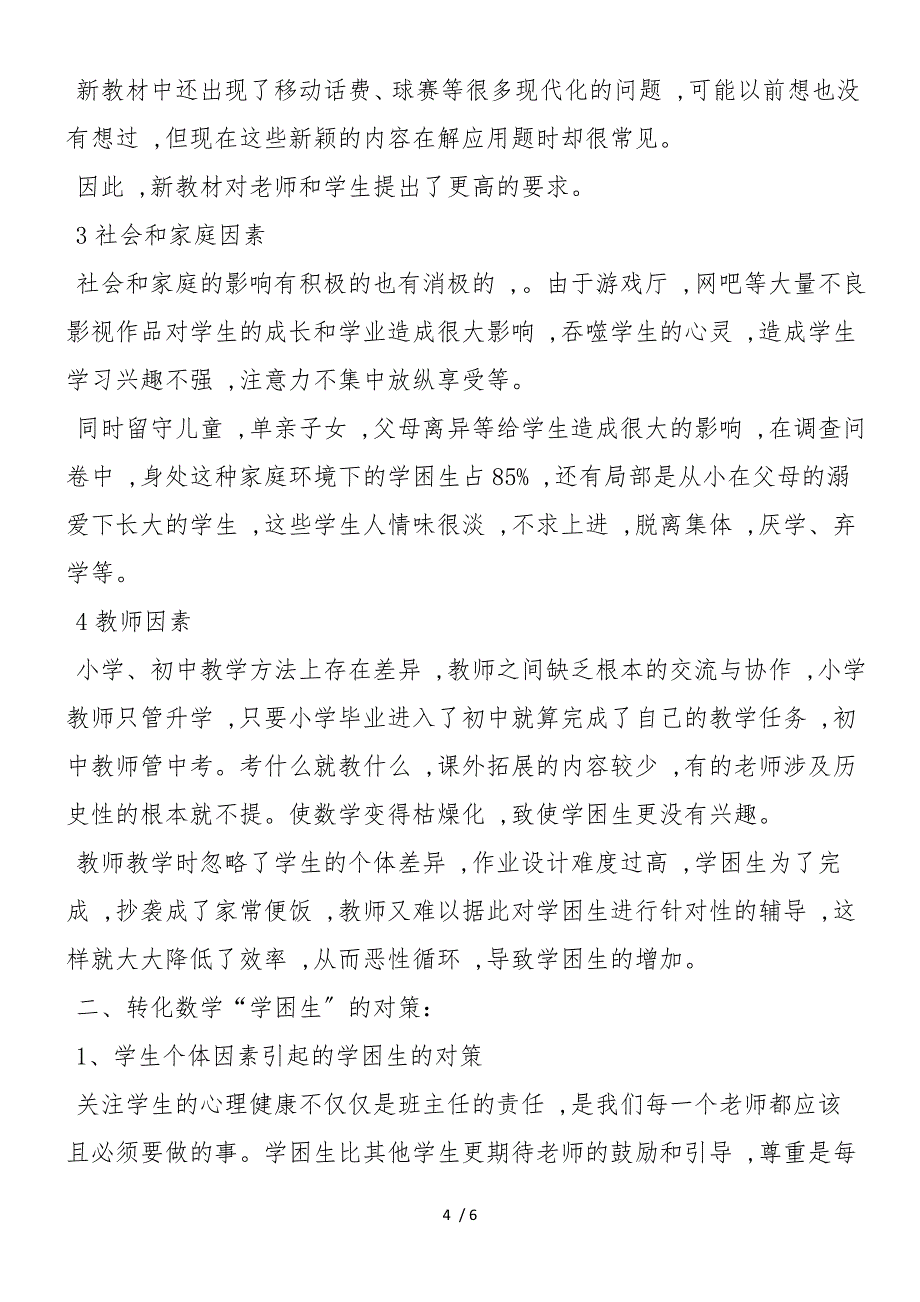 新教材中还出现了移动话费、球赛等很多现代化的问题 ,可能以前想也没
有想过 ,但现在这些新颖的内容在解应用题时却很常见。
因此 ,新教材对老师和学生提出了更高的要求。
3社会和家庭因素
社会和家庭的影响有积极的也有消极的 ,。由于游戏厅 ,网吧等大量不良
影视作品对学生的成长和学业造成很大影响 ,吞噬学生的心灵 ,造成学生
学习兴趣不强 ,注意力不集中放纵享受等。
同时留守儿童 ,单亲子女 ,父母离异等给学生造成很大的影响 ,在调查问
卷中 ,身处这种家庭环境下的学困生占85% ,还有局部是从小在父母的溺
爱下长大的学生 ,这些学生人情味很淡 ,不求上进 ,脱离集体 ,厌学、弃
学等。
4教师因素
小学、初中教学方法上存在差异 ,教师之间缺乏根本的交流与协作 ,小学
教师只管升学 ,只要小学毕业进入了初中就算完成了自己的教学任务 ,初
中教师管中考。考什么就教什么 ,课外拓展的内容较少 ,有的老师涉及历
史性的根本就不提。使数学变得枯燥化 ,致使学困生更没有兴趣。
教师教学时忽略了学生的个体差异 ,作业设计难度过高 ,学困生为了完
成 ,抄袭成了家常便饭 ,教师又难以据此对学困生进行针对性的辅导 ,这
样就大大降低了效率 ,从而恶性循环 ,导致学困生的增加。
二、转化数学“学困生〞的对策：
1、学生个体因素引起的学困生的对策
关注学生的心理健康不仅仅是班主任的责任 ,是我们每一个老师都应该
且必须要做的事。学困生比其他学生更期待老师的鼓励和引导 ,尊重是每
4 / 6